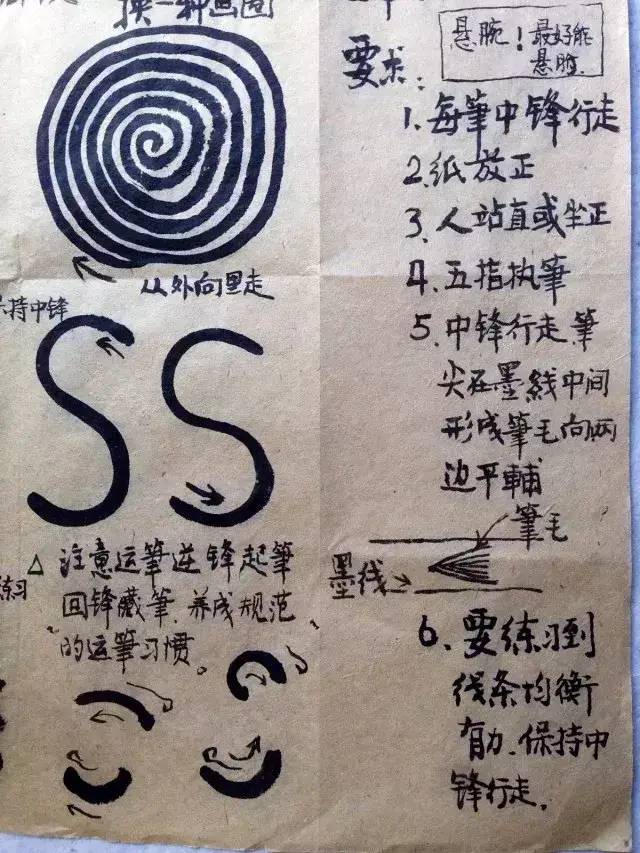 换一种画圈
从外向里走
保持中锋
△ 注意运筆逆锋起筆
回锋藏筆.养成规范
的运筆习惯。
练习
悬腕！最好能
悬肘.
要求：
1. 每筆中锋行走
2. 纸放正
3. 人站直或坐正
4. 五指执筆
5. 中锋行走.筆
尖在墨线中间
形成筆毛向两
边平輔
筆毛
墨线
6. 要练习到
线条均衡
有力.保持中
锋行走.